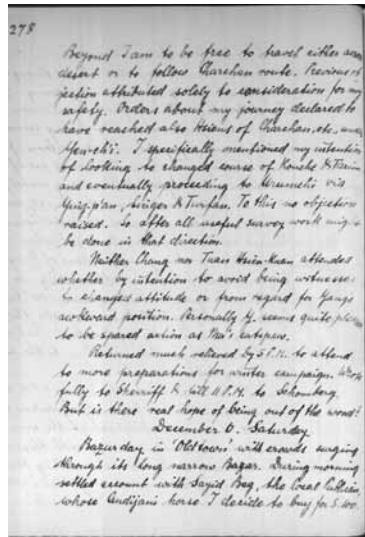 278
Beyond I am to be free to travel either across
desert or to follow Charchan route. Previous ob
jection attributed solely to consideration for my
safety. Orders about my journey declared to
have reached also Hsiens of Charchan, etc. under
I specifically mentioned my intention
of looking to changed course of Konche &
and eventually proceeding to Urumchi via
Ying-p'an, Singer & Turfan. To this no objection
raised. So after all useful survey work might
be done in that direction.
Neither Chang nor Tuan Hsin-kuan attended
whether by intention to avoid being witnesses
to changed attitude or from regard for Yang's
awkward position. Personally Y. seems quite pleased
to be spared action as Ma's catspaw.
Returned much relieved by 5 P.M. to attend
to more preparations for winter campaign. Wrote
fully to Sherriff & till 11 P.M. to Schomberg.
But is there real hope of being out of the wood?
December 6. Saturday
Bazar day in 'Old town' with crowds surging
through its long narrow Bazar. During morning
settled account with Sayid Beg, the local
whose Andijani horse I decide to buy for S.100.